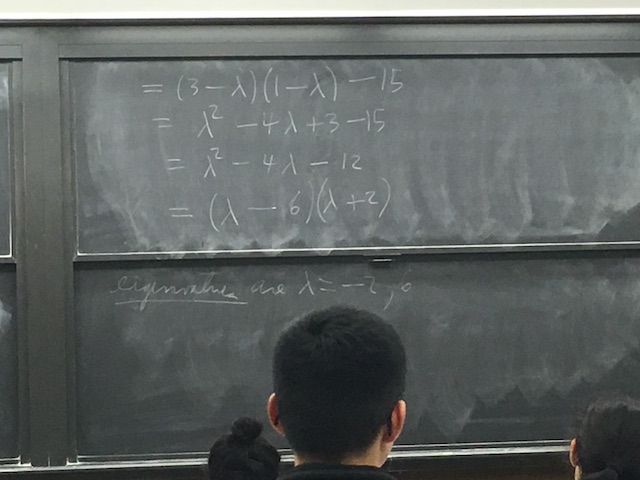 = (3 - λ)(1 - λ) - 15
= λ² - 4λ + 3 - 15
= λ² - 4λ - 12
= (λ - 6)(λ + 2)
eigenvalues are λ = -2, 6